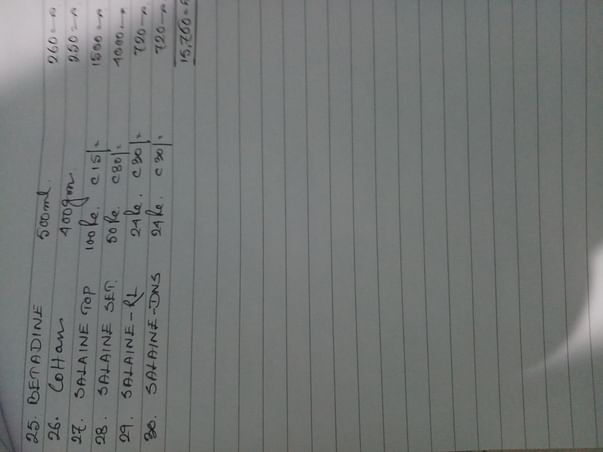 25. BETADINE 500ml. 260=
26. Cottan 400gm. 250=
27. SALAINE TOP 100Pc. @15/= 1500=
28. SALAINE SET. 50Pc. @80/= 4000=
29. SALAINE-RL 24Pc. @30/= 720=
30. SALAINE-DNS 24Pc. @30/= 720=
15,760=